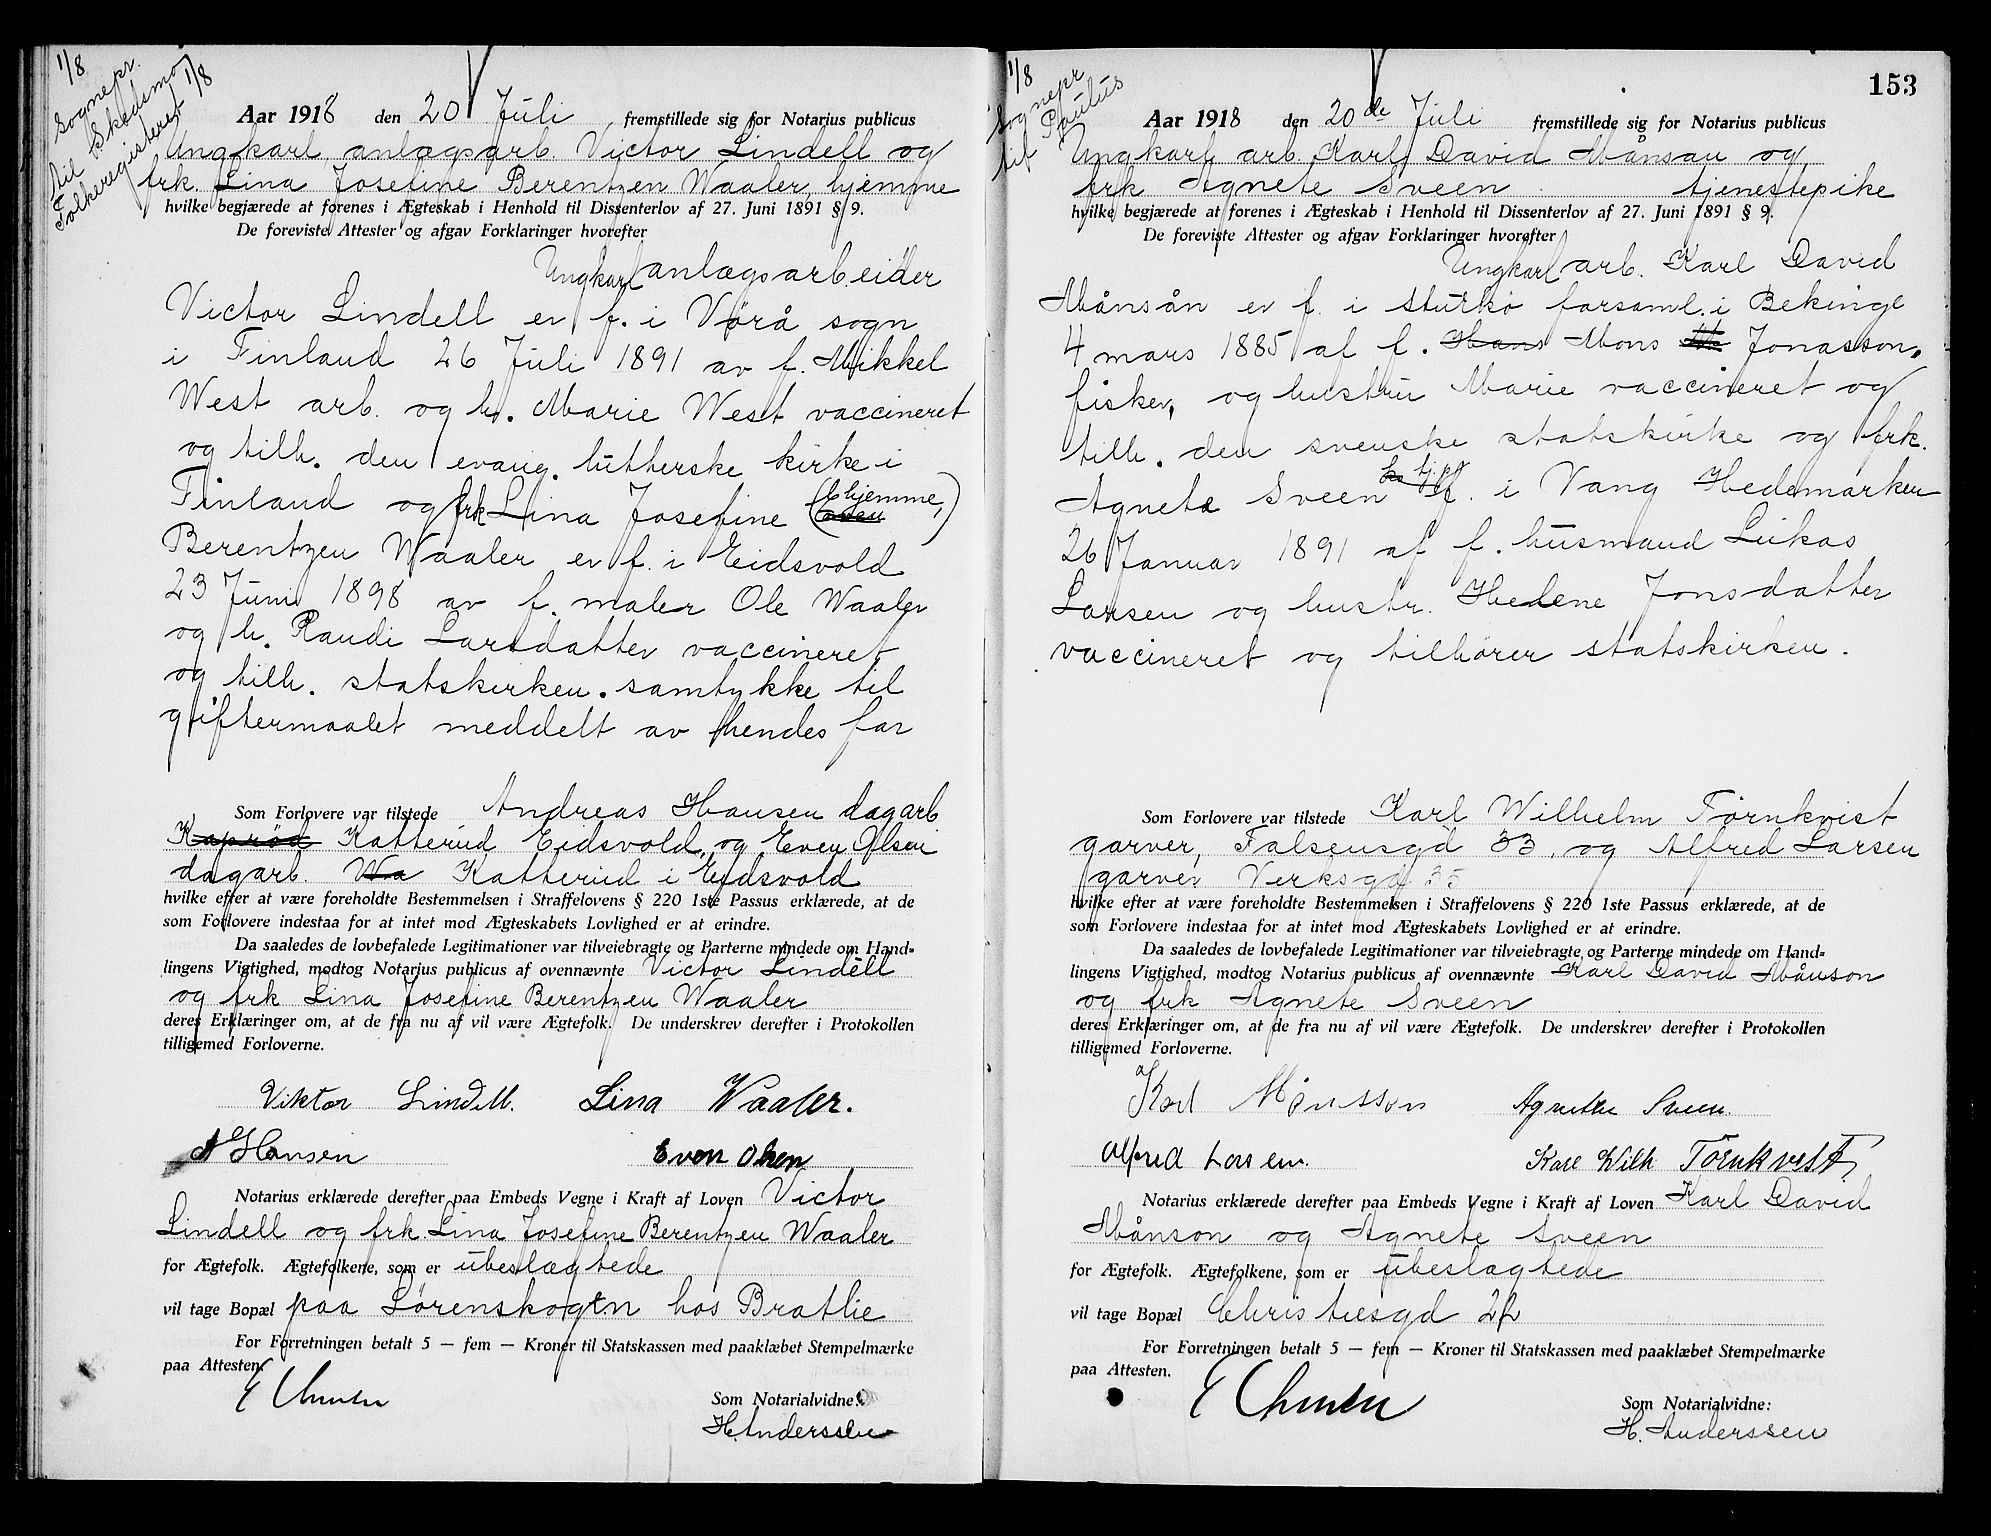 1/8
Sognepr.
til Skedsmo
Folkeregisteret 1/8
Aar 1918 den 20 Juli fremstillede sig for Notarius publicus
Ungkarl anlægsarb. Victor Lindell og
frk. Lina Josefine Berentzen Waaler, hjemme
hvilke begjærede at forenes i Ægteskab i Henhold til Dissenterlov af 27. Juni 1891 § 9.
De foreviste Attester og afgav Forklaringer hvorefter
Ungkarl anlægsarbeider
Victor Lindell er f. i Vørå sogn
i Finland 26 Juli 1891 av f. Mikkel
West arb. og h. Marie West vaccineret
og tilh. den evang. lutherske kirke i
Finland og frk Lina Josefine (hjemme,)
Berentzen Waaler er f. i Eidsvold
23 Juni 1898 av f. maler Ole Waaler
og h. Randi Larsdatter vaccineret
og tilh. statskirken. samtykke til
giftermaalet meddelt av hendes far
Som Forlovere var tilstede Andreas Hansen dagarb
Kaprød Katterud Eidsvold, og Even Olsen
dagarb. Wa Katterud i Eidsvold
hvilke efter at være foreholdte Bestemmelsen i Straffelovens § 220 1ste Passus erklærede, at de
som Forlovere indestaa for at intet mod Ægteskabets Lovlighed er at erindre.
Da saaledes de lovbefalede Legitimationer var tilveiebragte og Parterne mindede om Hand-
lingens Vigtighed, modtog Notarius publicus af ovennævnte Victor Lindell
og frk Lina Josefine Berentzen Waaler
deres Erklæringer om, at de fra nu af vil være Ægtefolk. De underskrev derefter i Protokollen
tilligemed Forloverne.
Viktor Lindell. Lina Waaler.
A Hansen Even Olsen
Notarius erklærede derefter paa Embeds Vegne i Kraft af Loven Victor
Lindell og frk. Lina Josefine Berentzen Waaler
for Ægtefolk. Ægtefolkene, som er ubeslægtede
vil tage Bopæl paa Lørenskogen hos Bratlie
For Forretningen betalt 5 — fem — Kroner til Statskassen med paaklæbet Stempelmærke
paa Attesten.
Som Notarialvidne:
H. Anderssen
153
1/8
Sognepr
til Paulus
Aar 1918 den 20de Juli fremstillede sig for Notarius publicus
Ungkarl arb. Karl David Månsan og
frk Agnete Sveen tjenestepike
hvilke begjærede at forenes i Ægteskab i Henhold til Dissenterlov af 27. Juni 1891 § 9.
De foreviste Attester og afgav Forklaringer hvorefter
Ungkarl arb. Karl David
Månsån er f. i Sturkø forsaml. i Bekinge
4 mars 1885 af f. Hans Mons Jonasson,
fisker, og hustru Marie vaccineret og
tilh. den svenske statskirke og frk.
Agnete Sveen tj.p. f. i Vang Hedemarken
26 Januar 1891 af f. husmand Lukas
Larsen og hustr. Helene Jonsdatter
vaccineret og tilhører statskirken.
Som Forlovere var tilstede Karl Wilhelm Törnkvist
garver, Falsensgd 33, og Alfred Larsen
garver Verksgd 35
hvilke efter at være foreholdte Bestemmelsen i Straffelovens § 220 1ste Passus erklærede, at de
som Forlovere indestaa for at intet mod Ægteskabets Lovlighed er at erindre.
Da saaledes de lovbefalede Legitimationer var tilveiebragte og Parterne mindede om Hand-
lingens Vigtighed, modtog Notarius publicus af ovennævnte Karl David Månson
og frk Agnete Sveen
deres Erklæringer om, at de fra nu af vil være Ægtefolk. De underskrev derefter i Protokollen
tilligemed Forloverne.
Karl Månsson Agnethe Sveen.
Alfred Larsen. Karl Wilh Törnkvist.
Notarius erklærede derefter paa Embeds Vegne i Kraft af Loven Karl David
Månson og Agnete Sveen
for Ægtefolk. Ægtefolkene, som er ubeslægtede
vil tage Bopæl Christiesgd 22
For Forretningen betalt 5 — fem — Kroner til Statskassen med paaklæbet Stempelmærke
paa Attesten.
Som Notarialvidne:
H. Anderssen